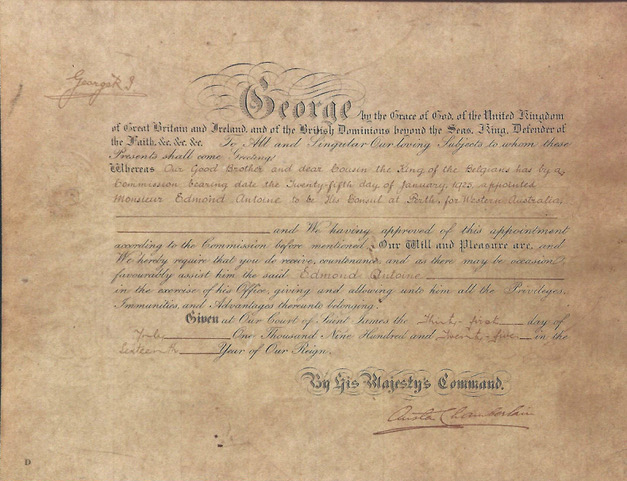 George R I
George by the Grace of God, of the United Kingdom
of Great Britain and Ireland, and of the British Dominions beyond the Seas, King, Defender of
the Faith, &c. &c. &c. To All and Singular Our loving Subjects to whom these
Presents shall come Greeting!
Whereas Our Good Brother and dear Cousin the King of the Belgians has by a
Commission bearing date the Twenty-fifth day of January, 1925, appointed
Monsieur Edmond Antoine to be His Consul at Perth, for Western Australia
and We having approved of this appointment
according to the Commission before mentioned, Our Will and Pleasure are, and
We hereby require that you do receive, countenance and as there may be occasion,
favourably assist him the said Edmond Antoine
in the exercise of his Office, giving and allowing unto him all the Privileges,
Immunities, and Advantages thereunto belonging.
Given at Our Court of Saint James the Thirty first day of
July One Thousand Nine Hundred and Twenty-five in the
Sixteenth Year of Our Reign.
By His Majesty's Command.
Austen Chamberlain
D